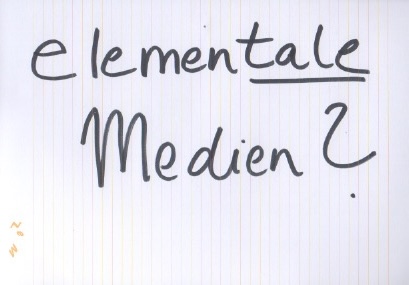 elementale
Medien?